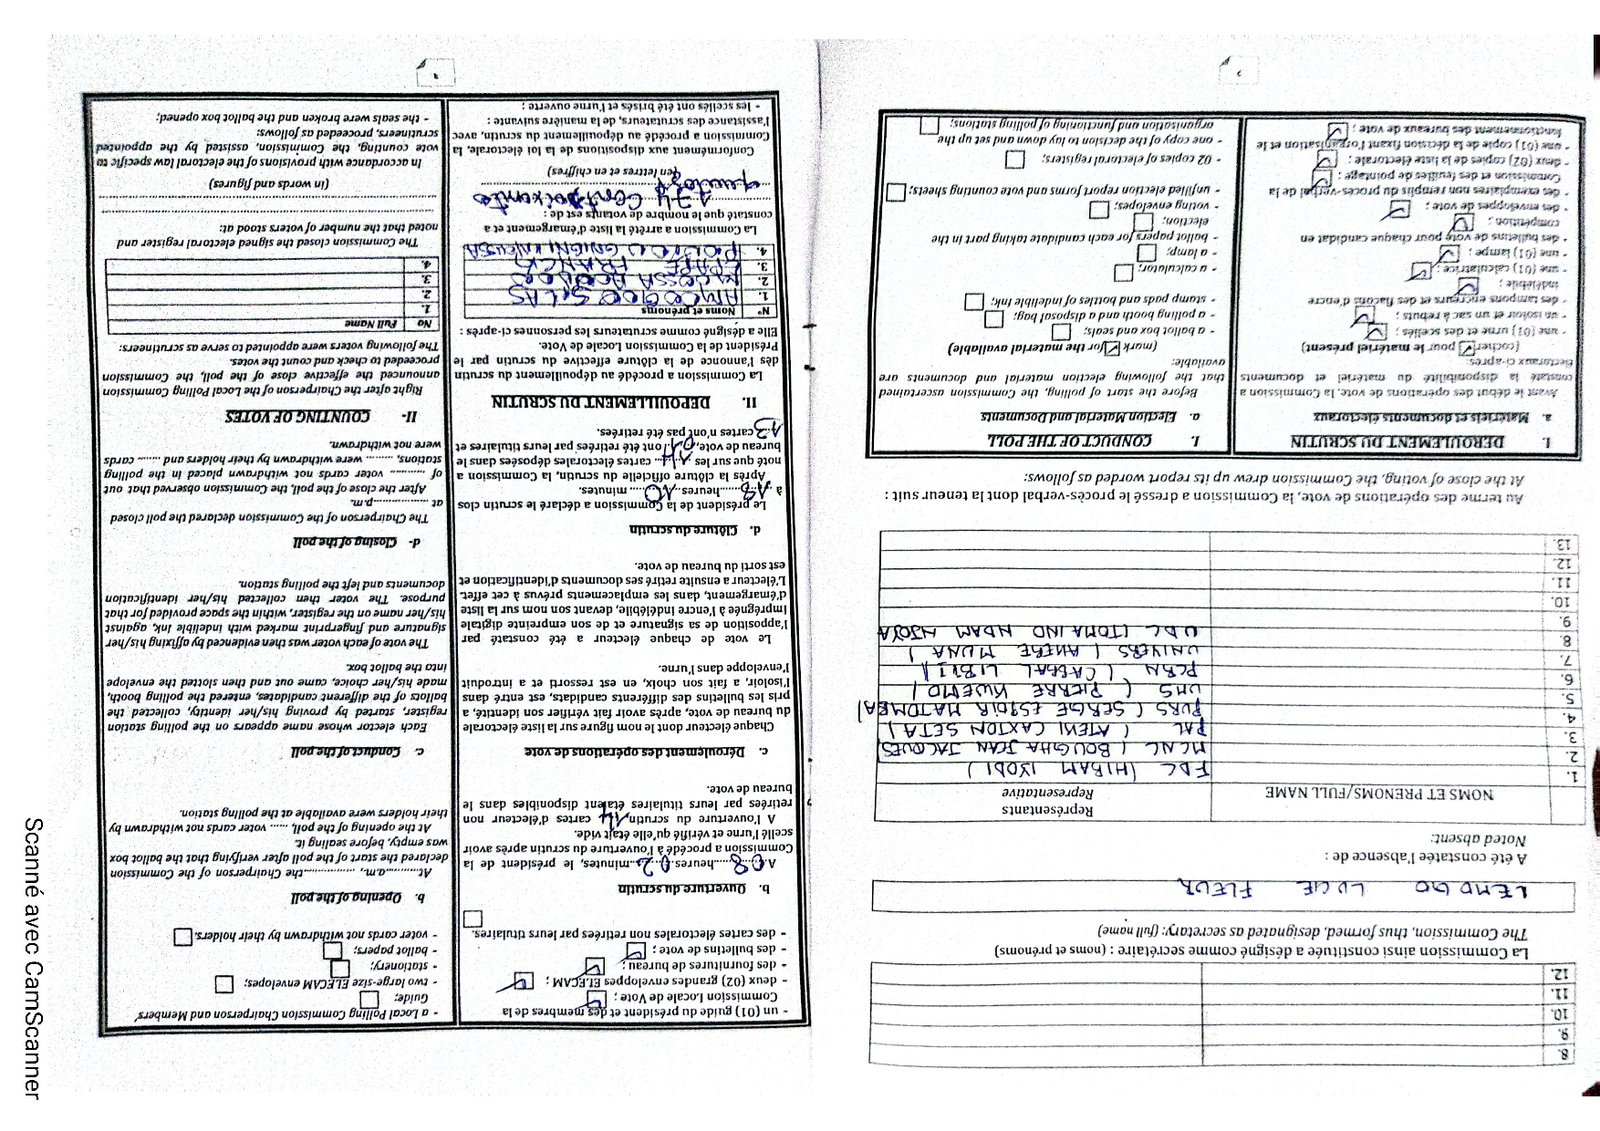 8.
9.
10.
11.
12.
La Commission ainsi constituée a désigné comme secrétaire : (noms et prénoms)
The Commission, thus formed, designated as secretary: (full name)
LEMOGO LUCIE FLEUR
A été constatée l'absence de :
Noted absent:
NOMS ET PRENOMS/FULL NAME
Représentants
Representative
1. FDC (HIRAM IYODI)
2. MCNC (BOUGHA JEAN JACQUES)
3. PAL (ATEKI CAXTON SETA)
4. PURS (SERGE ESPOIR MATOMBA)
5. UMS (PIERRE KWEMO)
6. PCRN (CABRAL LIBII)
7. UNIVERS (AKERE MUNA)
8. UDC (TOMAINO NDAM NJOYA
9.
10.
11.
12.
13.
Au terme des opérations de vote, la Commission a dressé le procès-verbal dont la teneur suit :
At the close of voting, the Commission drew up its report worded as follows:
I. DEROULEMENT DU SCRUTIN
a. Matériels et documents électoraux
Avant le début des opérations de vote, la Commission a
constaté la disponibilité du matériel et documents
électoraux ci-après:
(cocher pour le matériel présent)
- une (01) urne et des scellés ;
- un isoloir et un sac à rebuts ;
- des tampons encreurs et des flacons d'encre
indélébile ;
- une (01) calculatrice ;
- une (01) lampe ;
- des bulletins de vote pour chaque candidat en
compétition ;
- des enveloppes de vote ;
- des exemplaires non remplis du procès-verbal de la
Commission et des feuilles de pointage ;
- deux (02) copies de la liste électorale ;
- une (01) copie de la décision fixant l'organisation et le
fonctionnement des bureaux de vote ;
I. CONDUCT OF THE POLL
a. Election Material and Documents
Before the start of polling, the Commission ascertained
that the following election material and documents are
available:
(mark for the material available)
- a ballot box and seals;
- a polling booth and a disposal bag;
- stamp pads and bottles of indelible ink;
- a calculator;
- a lamp;
- ballot papers for each candidate taking part in the
election;
- voting envelopes;
- unfilled election report forms and vote counting sheets;
- 02 copies of electoral registers;
- one copy of the decision to lay down and set up the
organisation and functioning of polling stations;
2
- un (01) guide du président et des membres de la
Commission Locale de Vote ;
- deux (02) grandes enveloppes ELECAM ;
- des fournitures de bureau ;
- des bulletins de vote ;
- des cartes électorales non retirées par leurs titulaires.
b. Ouverture du scrutin
A 08 heures 02 minutes, le président de la
Commission a procédé à l'ouverture du scrutin après avoir
scellé l'urne et vérifié qu'elle était vide.
A l'ouverture du scrutin 14 cartes d'électeur non
retirées par leurs titulaires étaient disponibles dans le
bureau de vote.
c. Déroulement des opérations de vote
Chaque électeur dont le nom figure sur la liste électorale
du bureau de vote, après avoir fait vérifier son identité, a
pris les bulletins des différents candidats, est entré dans
l'isoloir, a fait son choix, en est ressorti et a introduit
l'enveloppe dans l'urne.
Le vote de chaque électeur a été constaté par
l'apposition de sa signature et de son empreinte digitale
imprégnée à l'encre indélébile, devant son nom sur la liste
d'émargement, dans les emplacements prévus à cet effet.
L'électeur a ensuite retiré ses documents d'identification et
est sorti du bureau de vote.
d. Clôture du scrutin
Le président de la Commission a déclaré le scrutin clos
à 18 heures 10 minutes.
Après la clôture officielle du scrutin, la Commission a
noté que sur les 14 cartes électorales déposées dans le
bureau de vote, 01 ont été retirées par leurs titulaires et
13 cartes n'ont pas été retirées.
II. DEPOUILLEMENT DU SCRUTIN
La Commission a procédé au dépouillement du scrutin
dès l'annonce de la clôture effective du scrutin par le
Président de la Commission Locale de Vote.
Elle a désigné comme scrutateurs les personnes ci-après :
N° Noms et prénoms
1.
2.
3. FRANCK
4.
La Commission a arrêté la liste d'émargement et a
constaté que le nombre de votants est de :
174 Cent soixante
quatorze
(en lettres et en chiffres)
Conformément aux dispositions de la loi électorale, la
Commission a procédé au dépouillement du scrutin, avec
l'assistance des scrutateurs, de la manière suivante :
- les scellés ont été brisés et l'urne ouverte ;
- a Local Polling Commission Chairperson and Members'
Guide;
- two large-size ELECAM envelopes;
- stationery;
- ballot papers;
- voter cards not withdrawn by their holders.
b. Opening of the poll
At..........a.m, ................the Chairperson of the Commission
declared the start of the poll after verifying that the ballot box
was empty, before sealing it.
At the opening of the poll, ...... voter cards not withdrawn by
their holders were available at the polling station.
c. Conduct of the poll
Each elector whose name appears on the polling station
register, started by proving his/her identity, collected the
ballots of the different candidates, entered the polling booth,
made his/her choice, came out and then slotted the envelope
into the ballot box.
The vote of each voter was then evidenced by affixing his/her
signature and fingerprint marked with indelible ink, against
his/her name on the register, within the space provided for that
purpose. The voter then collected his/her identification
documents and left the polling station.
d- Closing of the poll
The Chairperson of the Commission declared the poll closed
at ..................p.m.
After the close of the poll, the Commission observed that out
of .......... voter cards not withdrawn placed in the polling
stations, ....... were withdrawn by their holders and ...... cards
were not withdrawn.
II- COUNTING OF VOTES
Right after the Chairperson of the Local Polling Commission
announced the effective close of the poll, the Commission
proceeded to check and count the votes.
The following voters were appointed to serve as scrutineers:
No Full Name
1.
2.
3.
4.
The Commission closed the signed electoral register and
noted that the number of voters stood at:
(in words and figures)
In accordance with provisions of the electoral law specific to
vote counting, the Commission, assisted by the appointed
scrutineers, proceeded as follows:
- the seals were broken and the ballot box opened;
3
Scanné avec CamScanner